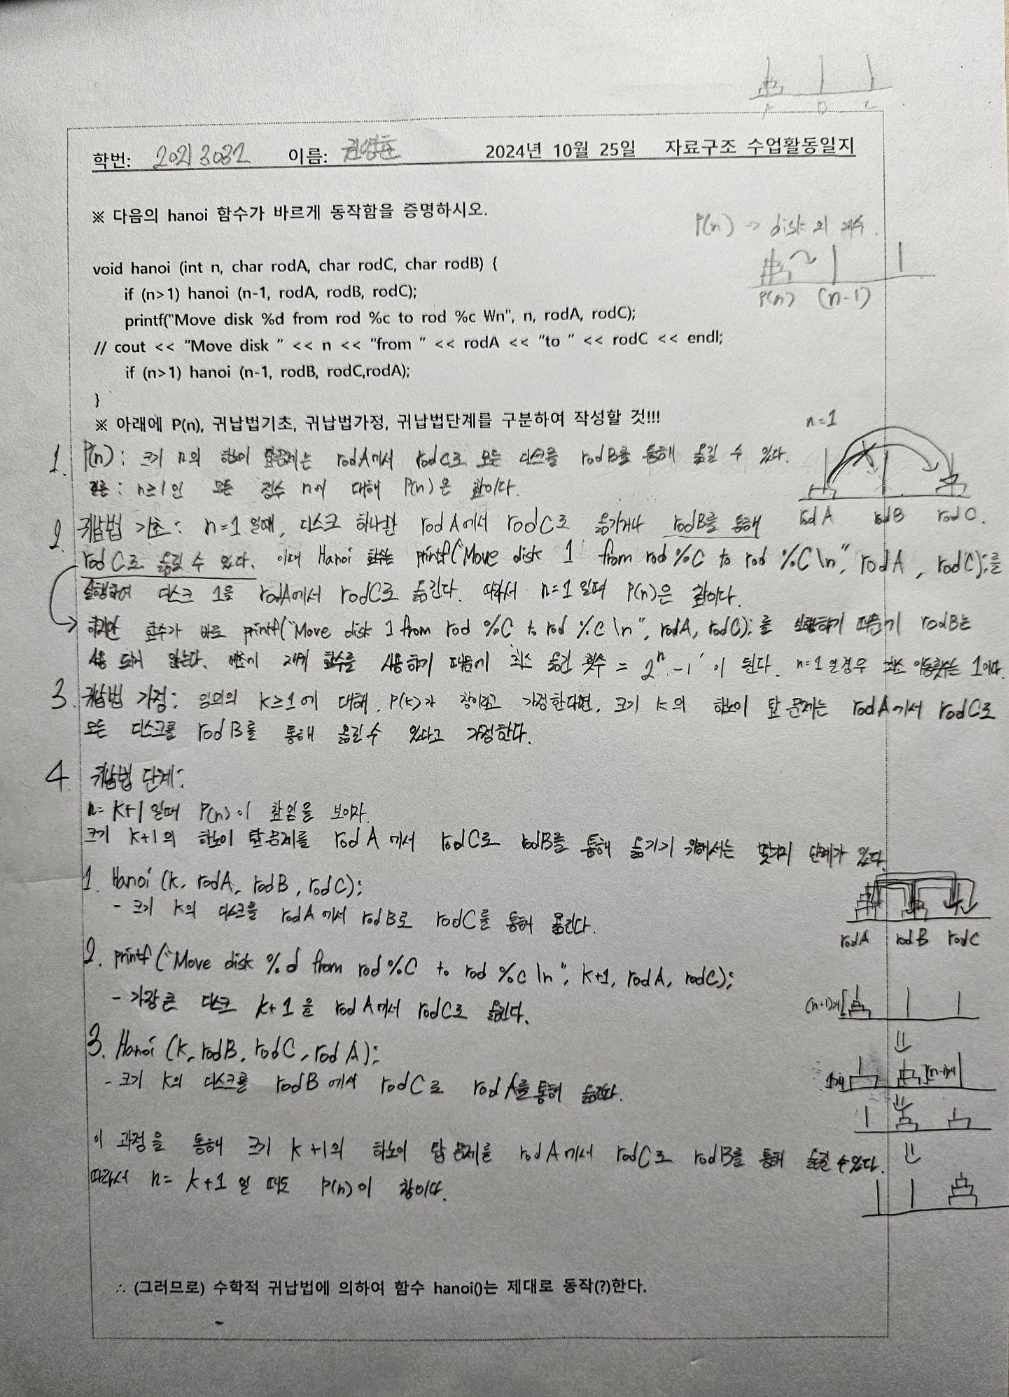 A B C
학번: 20213032 이름: 2024년 10월 25일 자료구조 수업활동일지
※ 다음의 hanoi 함수가 바르게 동작함을 증명하시오.
P(n) -> disk의 개수.
void hanoi (int n, char rodA, char rodC, char rodB) {
if (n>1) hanoi (n-1, rodA, rodB, rodC);
P(n) (n-1)
printf("Move disk %d from rod %c to rod %c Wn", n, rodA, rodC);
// cout << "Move disk " << n << "from " << rodA << "to " << rodC << endl;
if (n>1) hanoi (n-1, rodB, rodC,rodA);
}
※ 아래에 P(n), 귀납법기초, 귀납법가정, 귀납법단계를 구분하여 작성할 것!!!
n=1
1. P(n): 크기 n의 하노이 탑문제는 rodA에서 rodC로 모든 디스크를 rodB를 통해 옮길 수 있다.
결론: n≥1인 모든 정수 n에 대해 P(n)은 참이다.
rodA rodB rodC.
2. 귀납법 기초: n=1일때, 디스크 하나만 rodA에서 rodC로 옮기거나 rodB를 통해
rodC로 옮길 수 있다. 이때 Hanoi 함수는 printf("Move disk 1 from rod %C to rod %C\n", rodA, rodC);를
실행하여 디스크 1을 rodA에서 rodC로 옮긴다. 따라서 n=1일때 P(n)은 참이다.
하지만 함수가 바로 printf("Move disk 1 from rod %C to rod %c\n", rodA, rodC);를 실행하기 때문에 rodB는
사용 되지 않는다. 재귀 함수를 사용하기 때문에 최소 옮긴 횟수 = 2ⁿ-1이 된다. n=1일경우 최소 이동횟수는 1이다.
3. 귀납법 가정: 임의의 k≥1에 대해, P(k)가 참이라고 가정한다면, 크기 k의 하노이 탑 문제는 rodA에서 rodC로
모든 디스크를 rodB를 통해 옮길수 있다고 가정한다.
4. 귀납법 단계:
n=k+1일때 P(n)이 참임을 보이자.
크기 k+1의 하노이 탑문제를 rodA에서 rodC로 rodB를 통해 옮기기 위해서는 몇가지 단계가 있다.
1. Hanoi (k, rodA, rodB, rodC);
- 크기 k의 디스크를 rodA에서 rodB로 rodC를 통해 옮긴다.
rodA rodB rodC
2. printf("Move disk %d from rod %C to rod %c\n", k+1, rodA, rodC);
- 가장 큰 디스크 k+1을 rodA에서 rodC로 옮긴다.
(n-1)개
3. Hanoi (k, rodB, rodC, rodA);
- 크기 k의 디스크를 rodB에서 rodC로 rodA를 통해 옮긴다.
1개 (n-1)개
이 과정을 통해 크기 k+1의 하노이 탑 문제를 rodA에서 rodC로 rodB를 통해 옮길 수 있다.
따라서 n=k+1일 때도 P(n)이 참이다.
∴ (그러므로) 수학적 귀납법에 의하여 함수 hanoi()는 제대로 동작(?)한다.